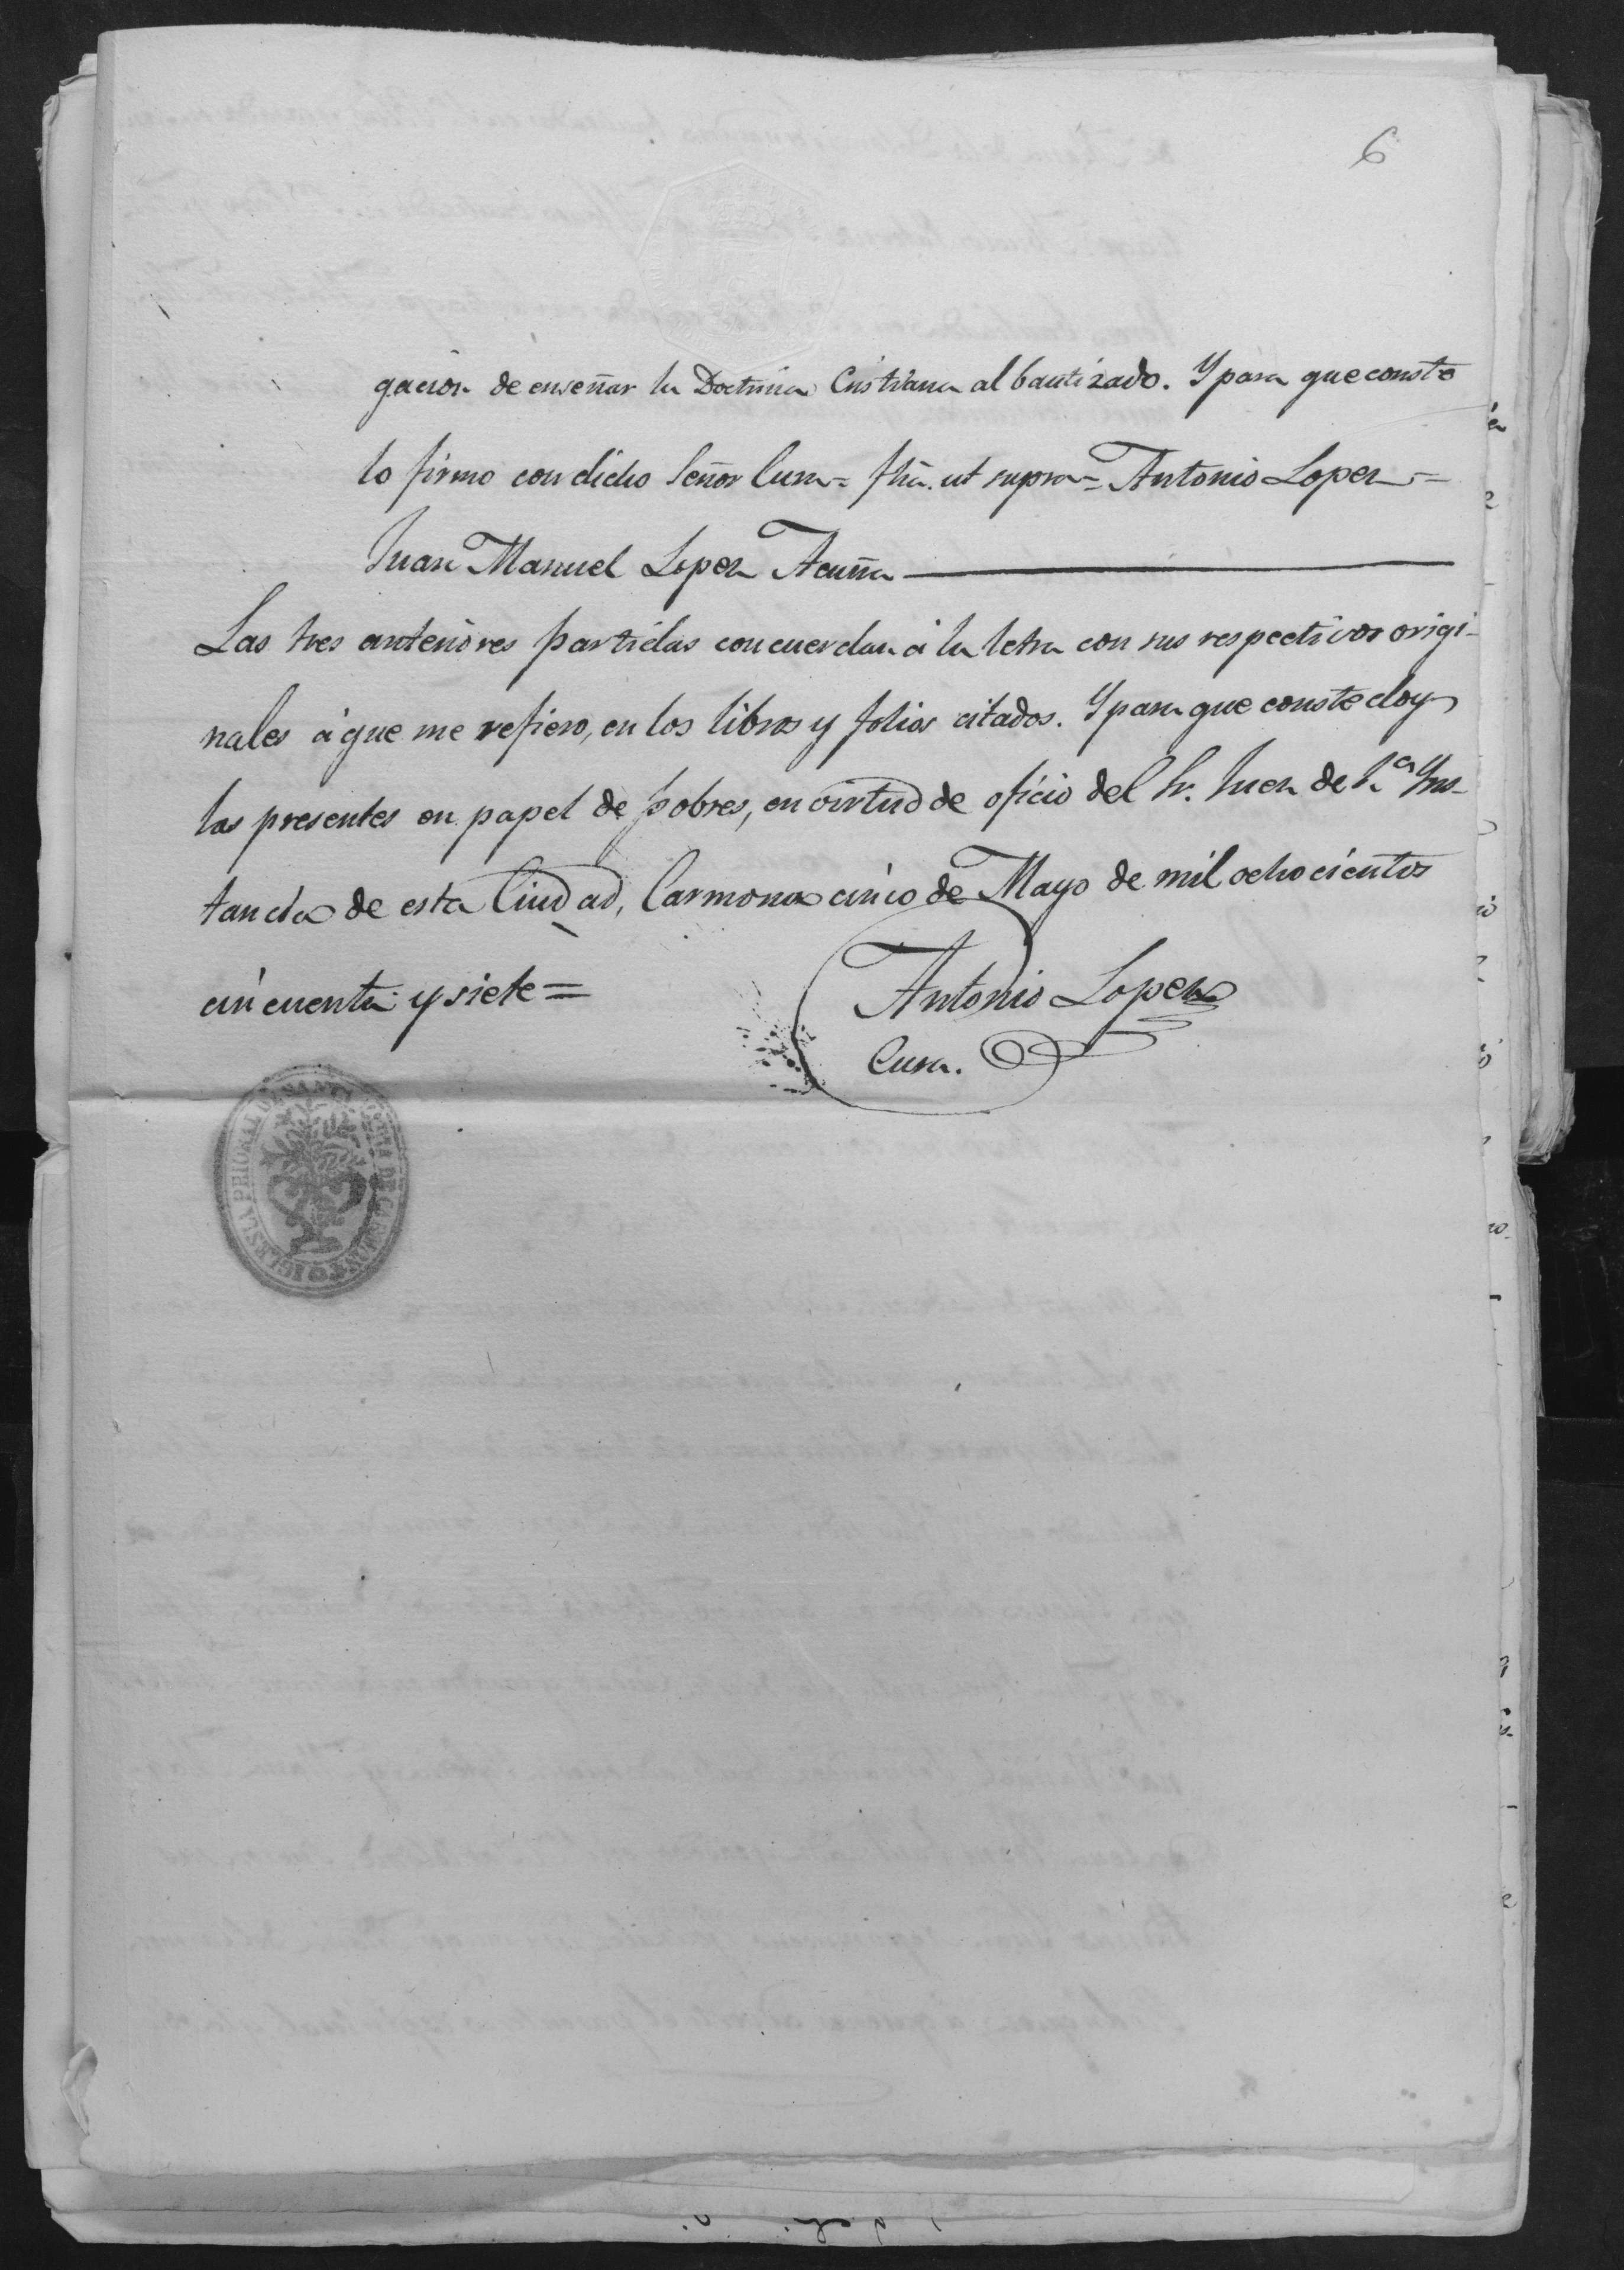 6
gacion de enseñar la Doctrina Cristiana al bautizado. Y para que conste
lo firmo con dicho Señor Cura = fha. ut supra = Antonio Lopez =
Juan Manuel Lopez Acuña
Las tres anteriores partidas concuerdan á la letra con sus respectivos origi-
nales á que me refiero, en los libros y folios citados. Y para que conste doy
las presentes en papel de pobres, en virtud de oficio del Sr. Juez de 1.ª Yns-
tancia de esta Ciudad, Carmona cinco de Mayo de mil ochocientos
cincuenta y siete =
Antonio Lopez
Cura.
IGLESIA PRIORAL DE SANTA